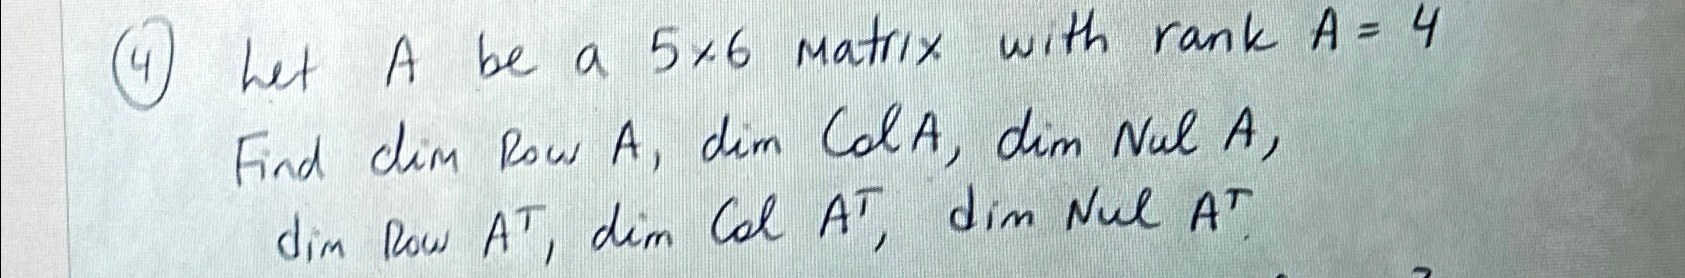 (4) Let A be a 5×6 Matrix with rank A = 4
Find dim Row A, dim Col A, dim Nul A,
dim Row Aᵀ, dim Col Aᵀ, dim Nul Aᵀ.